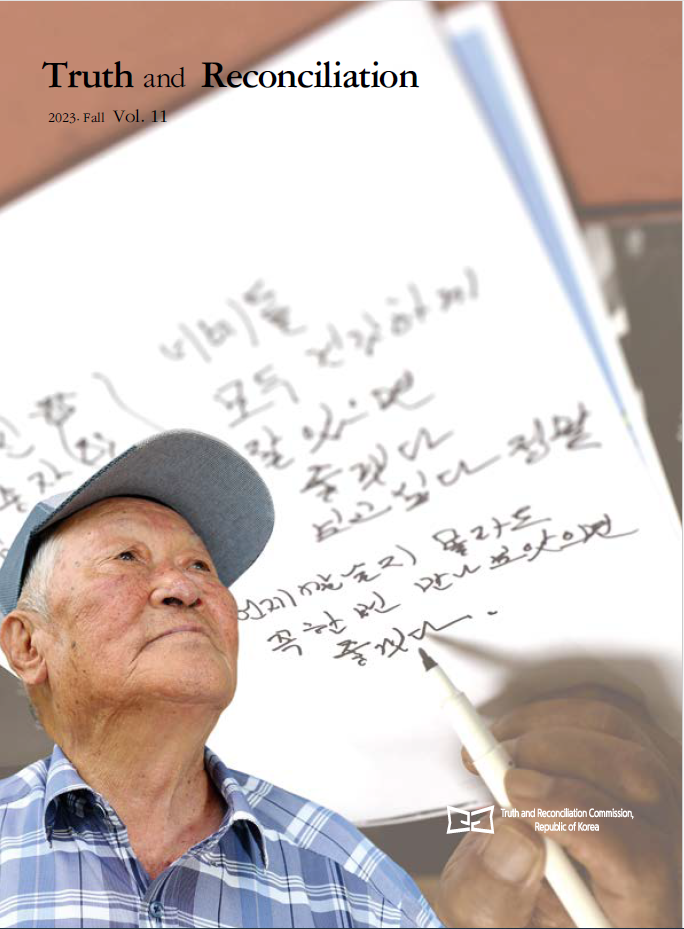 Truth and Reconciliation
2023· Fall Vol. 11
모두 건강하게
잘 있으면
좋겠다
보고싶다 정말
몰라도
꼭 한번 만나보았으면
좋겠다.
Truth and Reconciliation Commission,
Republic of Korea